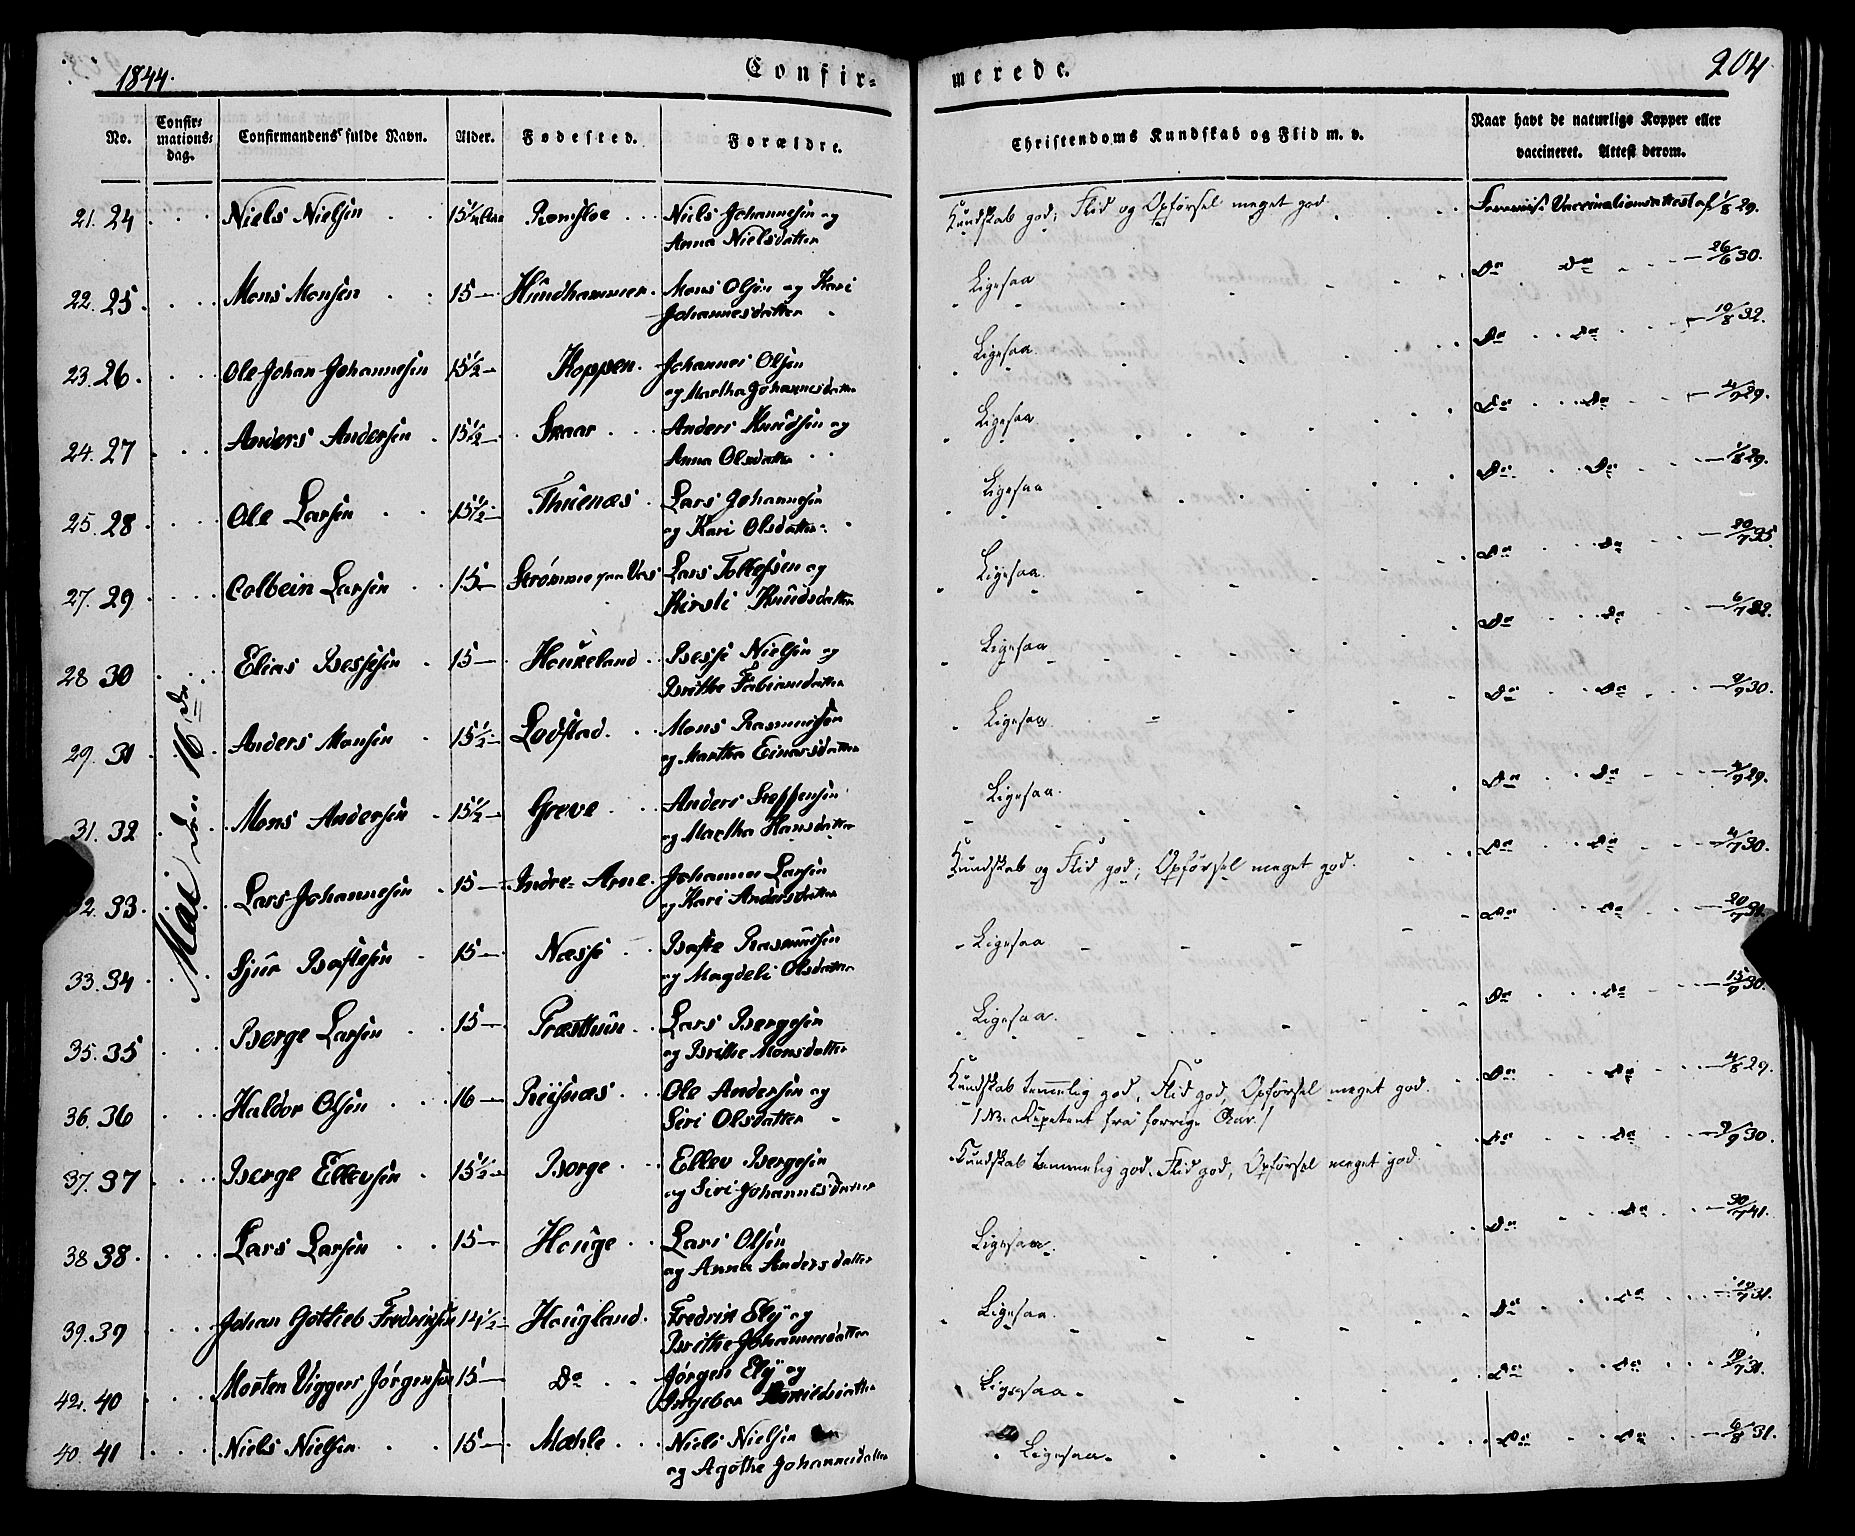 1844.
Confir-
merede.
204
No.
Confir-
mations-
dag.
Confirmandens fulde Navn.
Alder.
Fødested.
Forældre.
Christendoms Kundskab og Flid m. v.
Naar havt de naturlige Kopper eller
vaccineret. Attest derom.
Mai den 16de
21. 24 Niels Nielsen 15 1/4 Aar Romsloe Niels Johannesen og Kundskab god; Flid og Opførsel meget god Vaccinationsattest af 1/8 29.
Anna Nielsdatter
22. 25. Mons Monsen 15 Hundhammer. Mons Olsen og Kari Ligesaa Do Do 26/6 30.
Johannesdatter
23. 26. Ole Johan Johannesen 15 1/2 Koppen. Johannes Olsen Ligesaa. Do Do 10/8 32.
og Martha Johannesdatter
24. 27 Anders Andersen 15 1/2 Skaar Anders Knudsen og Ligesaa. Do Do 4/7 29.
Anna Olsdatter
25. 28 Ole Larsen 15 1/2 Thuenæs Lars Johannesen Ligesaa Do Do 1/8 29.
og Kari Olsdatter
27. 29 Colbein Larsen 15 Strømme paa Vos Lars Folkesen og Ligesaa. Do Do 20/7 35.
Kirsti Knudsdatter
28 30 Elias Bessesen 15 Houkeland Besse Nielsen og Ligesaa Do Do 6/7 32.
Brithe Fabiansdatter
29. 31 Anders Monsen 15 1/2 Lodstad. Mons Rasmussen Ligesaa. Do Do 9/7 30.
og Martha Einarsdatter
31. 32 Mons Andersen 15 1/2 Greve Anders Steffensen Ligesaa. Do Do 4/9 29.
og Martha Hansdatter
32. 33. Lars Johannesen 15 Indre Arne. Johannes Larsen Kundskab og Flid god; Opførsel meget god. Do Do 4/7 30.
og Kari Andersdatter
33. 34. Sjur Bastesen 15 Næsse Baste Rasmussen Ligesaa Do Do 20/7 31.
og Magdeli Olsdatter
35. 35 Børge Larsen 15 Præsttun Lars Børgesen Ligesaa. Do Do 15/9 30.
og Brithe Monsdatter
36. 36 Haldor Olsen 16 Riisnæs Ole Andersen og Kundskab temmelig god, Flid god, Opførsel meget god. Do Do 4/8 29.
Siri Olsdatter / NB. Repetent fra forrige Aar. /
37. 37 Børge Ellevsen 15 1/2 Borge Ellev Børgesen Kundskab temmelig god. Flid god, Opførsel meget god. Do Do 9/9 30.
og Siri Johannesdatter
38 38. Lars Larsen 15 Houge Lars Olsen Ligesaa. Do Do 30/7 41.
og Anna Andersdatter
39. 39 Johan Gottlieb Fredriksen 14 1/2 Hougland. Fredrik Ely og Ligesaa. Do Do 10/7 31.
Brithe Johannesdatter
42. 40 Morten Viggers Jørgensen 15 Do Jørgen Ely og Ligesaa. Do Do 19/7 31.
Ingebor
40. 41 Niels Nielsen 15 Mæhle Niels Nielsen Ligesaa. Do Do 6/8 31.
og Agothe Johannesdatter